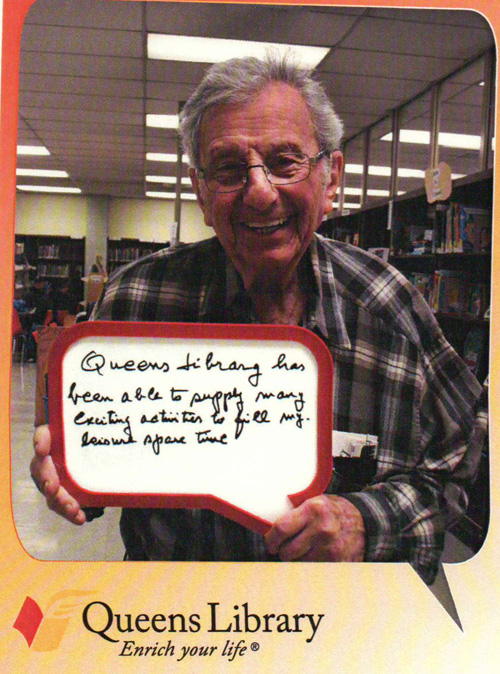 Queens Library has
been able to supply many
exciting activities to fill my
leisure spare time
Queens Library
Enrich your life®